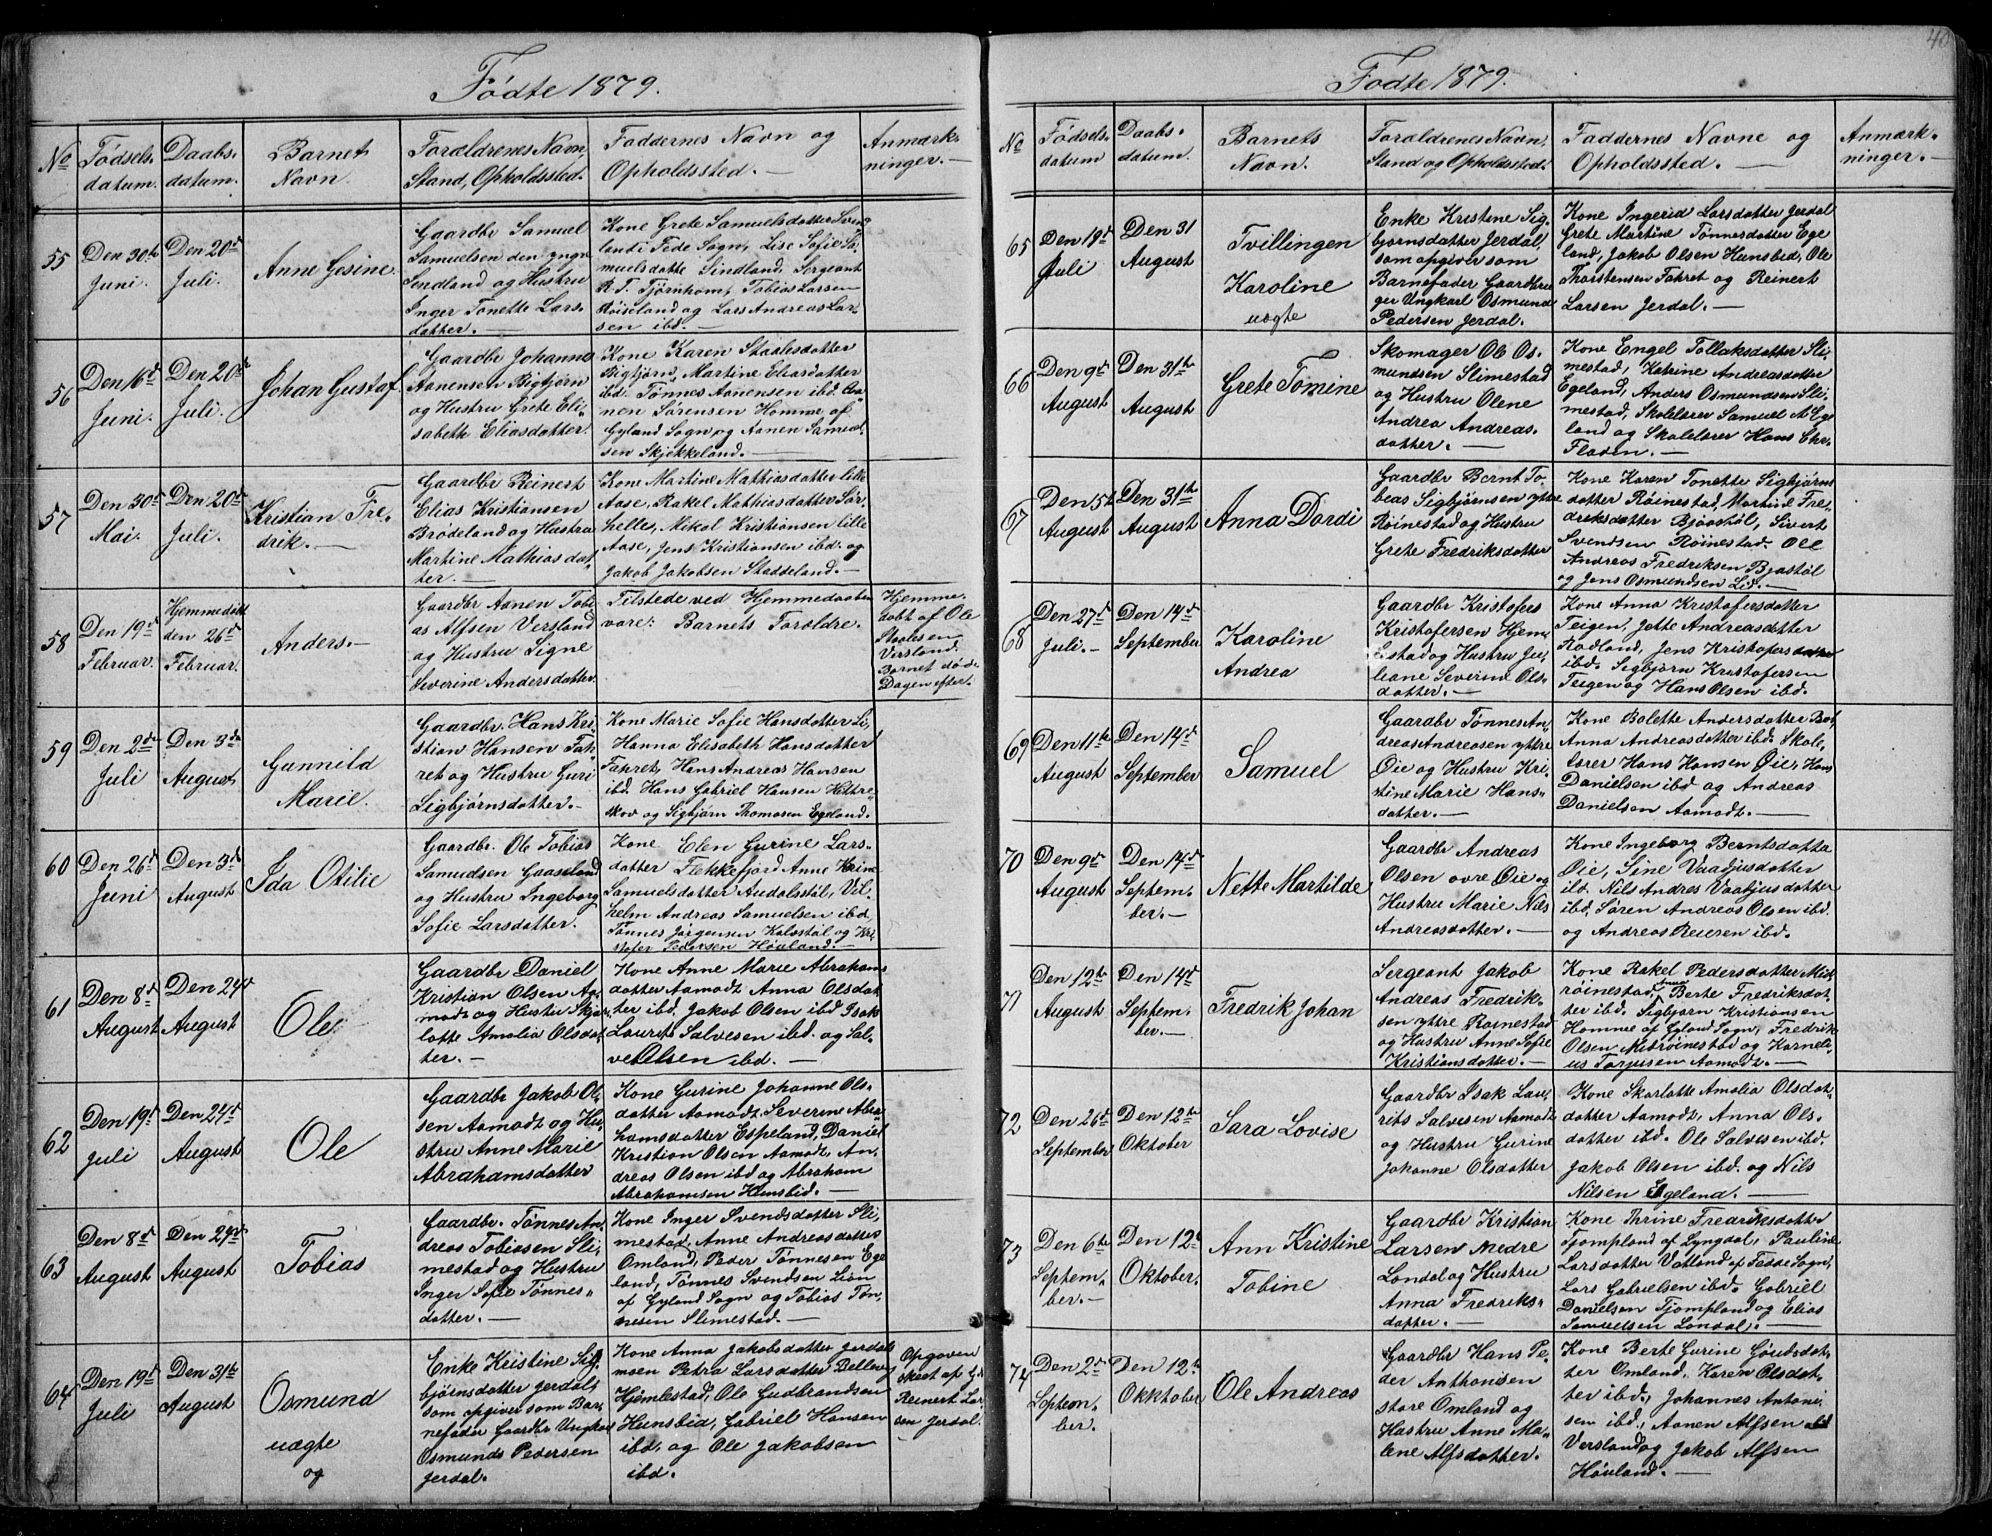 40
Fødte 1879.
No
Fødsels-
datum.
Daabs-
datum.
Barnets
Navn.
Forældrenes Navn,
Stand, Opholdssted.
Faddernes Navn og
Opholdssted. —
Anmærk-
ninger. —
55
Den 30te
Juni.
Den 20de
Juli.
Anne Gesine.
Gaardbr Samuel
Samuelsen den yngre
Sendland og Hustru
Inger Tonette Lars-
datter. —
Kone Grete Samuelsdatter Sven-
landi Fede Sogn, Lise Sofie Sa-
muelsdatte Sindland, Sergeant
R. T. Tjørnhom, Tobias Larsen
Røiseland og Lars Andreas Lar-
sen ibd. —
56
Den 16de
Juni.
Den 20de
Juli.
Johan Gustaf.
Gaardbr Johannes
Aanensen Bigbjørn
og Hustru Grete Eli-
sabeth Eliasdatter.
Kone Karen Staalesdatter
Bigbjørn, Martine Eliasdatter
ibd. Tønnes Aanensen ibd. Aa-
nen Sørensen Homme af
Gyland Sogn, og Aanen Samuel-
sen Skjekkeland. —
57
Den 30te
Mai.
Den 20de
Juli.
Kristian Fre-
drik. —
Gaardbr Reinert
Elias Kristiansen
Brødeland og Hustru
Martine Mathiasdat-
ter. —
Kone Martine Mathiasdatter lille
Aase, Rakel Mathiasdatter Sør-
helle, Mikol Kristiansen lille
Aase, Jens Kristiansen ibd. og
Jakob Jakobsen Staddeland. —
58
Den 19de
Februar.
Hjemmedøbt
den 26de
Februar.
Anders. —
Gaardbr Aanen Tobi-
as Alfsen Versland
og Hustru Signe
Severine Andersdatter.
Tilstede ved Hjemmedaaben
vare: Barnets Forældre.
Hjemme-
døbt af Ole
Staalesen
Versland.
Barnet døde
Dagen efter.
59
Den 2den
Juli
Den 3die
August.
Gunnild
Marie.
Gaardbr. Hans Kri-
stian Hansen Fah-
ret og Hustru Guri
Sigbjørnsdatter. —
Kone Marie Sofie Hansdatter Li,
Hanna Elisabeth Hansdatter
Fahret, Hans Andreas Hansen
ibd. Hans Gabriel Hansen Hettre-
skov og Sigbjørn Thomasen Egeland.
60
Den 26de
Juni
Den 3die
August
Ida Otilie
Gaardbr. Ole Tobias
Samuelsen Gaaseland
og Hustru Ingeborg
Sofie Larsdatter.
Kone Elen Gurine Lars-
datter Flekkefjord Anne Karine
Samuelsdatter Audalsstøl, Vil-
helm Andreas Samuelsen ibd.
Tønnes Jørgensen Kalsstøl og Kri-
stofer Pedersen Høuland. —
61
Den 8de
August
Den 24de
August
Ole
Gaardbr Daniel
Kristian Olsen Aa-
modt og Hustru Skar-
lotte Amalia Olsdat-
ter. —
Kone Anne Marie Abrahams-
datter Aamodt Anna Olsdat-
ter ibd. Jakob Olsen ibd Isak
Laurits Salvesen ibd. og Sal-
ve Olsen ibd. —
62
Den 19de
Juli
Den 24de
August
Ole
Gaardbr Jakob Ol-
sen Aamodt og Hu-
stru Anne Marie
Abrahamsdatter
Kone Gurine Johanne Ols-
datter Aamodt, Severine Abra-
hamsdatter Espeland, Daniel
Kristian Olsen Aamodt, An-
dreas Olsen ibd og Abraham
Abrahamsen Hunsbid. —
63
Den 8de
August
Den 24de
August
Tobias
Gaardbr. Tønnes An-
dreas Tobiasen Sli-
mestad og Hustru
Inger Sofie Tønnes-
datter. —
Kone Inger Svendsdatter Sli-
mestad, Anne Andreasdatter
Omland, Peder Tønnesen Ege-
land, Tønnes Svendsen Lien
af Gyland Sogn og Tobias Tøn-
nesen Slimestad. —
64
Den 19de
Juli
Den 31te
August
Osmund
uægte
og
Enke Kristine Sig-
bjørnsdatter Jerdal,
som opgiver som Bar-
nefader Gaardbr Ungkarl
Osmund Pedersen
Jerdal.
Kone Anna Jakobsdatter Jerdals-
moen Petra Larsdatter Bellevig
Hjemlestad, Ole Gudbrandsen
Hunsbid, Gabriel Hansen
ibd, og Ole Jakobsen
ibd.
Opgaven
skeet af G.
Reinert Lar-
sen Jerdal.
—
Fødte 1879.
No
Fødsels-
datum
Daabs-
datum.
Barnets
Navn.
Forældrenes Navn,
Stand og Opholdssted.
Faddernes Navne og
Opholdssted. —
Anmærk-
ninger. —
65
Den 19de
Juli
Den 31
August
Tvillingen
Karoline
uægte
Enke Kristine Sig-
bjørnsdatter Jerdal,
som opgiver som
Barnefader Gaardbru-
ger Ungkarl Osmund
Pedersen Jerdal.
Kone Ingerid Larsdatter Jerdal
Grete Martine Tønnesdatter Ege-
land, Jakob Olsen Hunsbid, Ole
Thorstensen Fahret og Reinert
Larsen Jerdal. —
66
Den 9de
August
Den 31te
August
Grete Tomine
Skomager Ole Os-
mundsen Slimestad
og Hustru Olene
Andrea Andreas-
datter. —
Kone Engel Tollaksdatter Sli-
mestad, Katrine Andreasdatter
Egeland, Anders Osmundsen Sli-
mestad, Skolelærer Samuel A. Ege-
land og Skolelærer Hans Chr.
Fladen. —
67
Den 15de
August
Den 31te
August
Anna Dordi
Gaardbr Bernt To-
beas Sigbjørnsen ytre
Røinestad og Hustru
Grete Fredriksdatter
Kone Karen Tonette Sigbjørns-
datter Røinestad, Martine Fre-
driksdatter Bjaastøl, Sivert
Svendsen Røinestad. Ole
Andreas Fredriksen Bjastøl
og Jens Osmundsen Lid. —
68
Den 27de
Juli. —
Den 14de
September
Karoline
Andrea
Gaardbr Kristofers
Kristofersen Hjem-
lestad og Hustru Ju-
liane Severine Ols-
datter. —
Kone Anna Kristofersdatter
Teigen, Jette Andreasdatter
Rødland, Jens Kristofersen
ibd. Sigbjørn Kristofersen
Teigen og Hans Olsen ibd.
69
Den 11te
August
Den 14de
September
Samuel
Gaardbr Tønnes An-
dreas Andreasen ytre
Øie og Hustru Kri-
stine Marie Hans-
datter. —
Kone Bolette Andersdatter
Anna Andreasdatter ibd. Skole-
lærer Hans Hansen Øie, Hans
Danielsen ibd og Andreas
Danielsen Aamodt. —
70
Den 9de
August
Den 14de
Septem-
ber. —
Nette Martilde
Gaardbr Andreas
Olsen øvre Øie og
Hustru Marie Nils
Andreasdatter. —
Kone Ingeborg Berntsdatter
Øie, Sine Vaatjusdatter
ibd. Nils Andres Vaatjusdatter
ibd, Søren Andreas Olsen ibd.
og Andreas Reiersen ibd.
71
Den 12te
August
Den 14de
Septem-
ber. —
Fredrik Johan
Sergeant Jakob
Andreas Fredrik-
sen ytre Røinestad
og Hustru Anne Sofie
Kristiansdatter. —
Kone Rakel Pedersdatter Mid-
røinestad, Anne Berte Fredriksdat-
ter ibd. Sigbjørn Kristiansen
Homme af Gyland Sogn, Fredrik
Olsen Midrøinestad og Korneli-
us Torjusen Aamodt. —
72
Den 26de
September
Den 12te
Oktober
Sara Lovise
Gaardbr Isak Lau-
rits Salvesen Aamodt
og Hustru Gurine
Johanne Olsdatter
Kone Skarlotte Amalia Olsdat-
datter Aamodt, Anna Ols-
datter ibd. Ole Salvesen ibd.
Jakob Olsen ibd. og Nils
Nilsen Egeland. —
73
Den 6te
Septem-
ber. —
Den 12te
Oktober.
Ann Kristine
Tobine
Gaardbr Kristian
Larsen nedre
Londal og Hustru
Anna Fredriks-
datter. —
Kone Thrine Fredriksdatter
Tjompland af Lyngdal, Pauline
Larsdatter Vatland af Fædde Sogn,
Lars Gabrielsen ibd. Gabriel
Danielsen Tjompland og Elias
Samuelsen Londal. —
74
Den 2de
Septem-
ber.
Den 12te
Okktober
Ole Andreas
Gaardbr Hans Pe-
der Anthonisen
store Omland og
Hustru Anne Ma-
lene Alfsdatter.
Kone Berte Gurine Gaudsdat-
ter Omland, Karen Olsdat-
ter ibd., Johannes Antoni-
sen ibd., Aanen Alfsen
Versland og Jakob Alfsen
Høuland. —